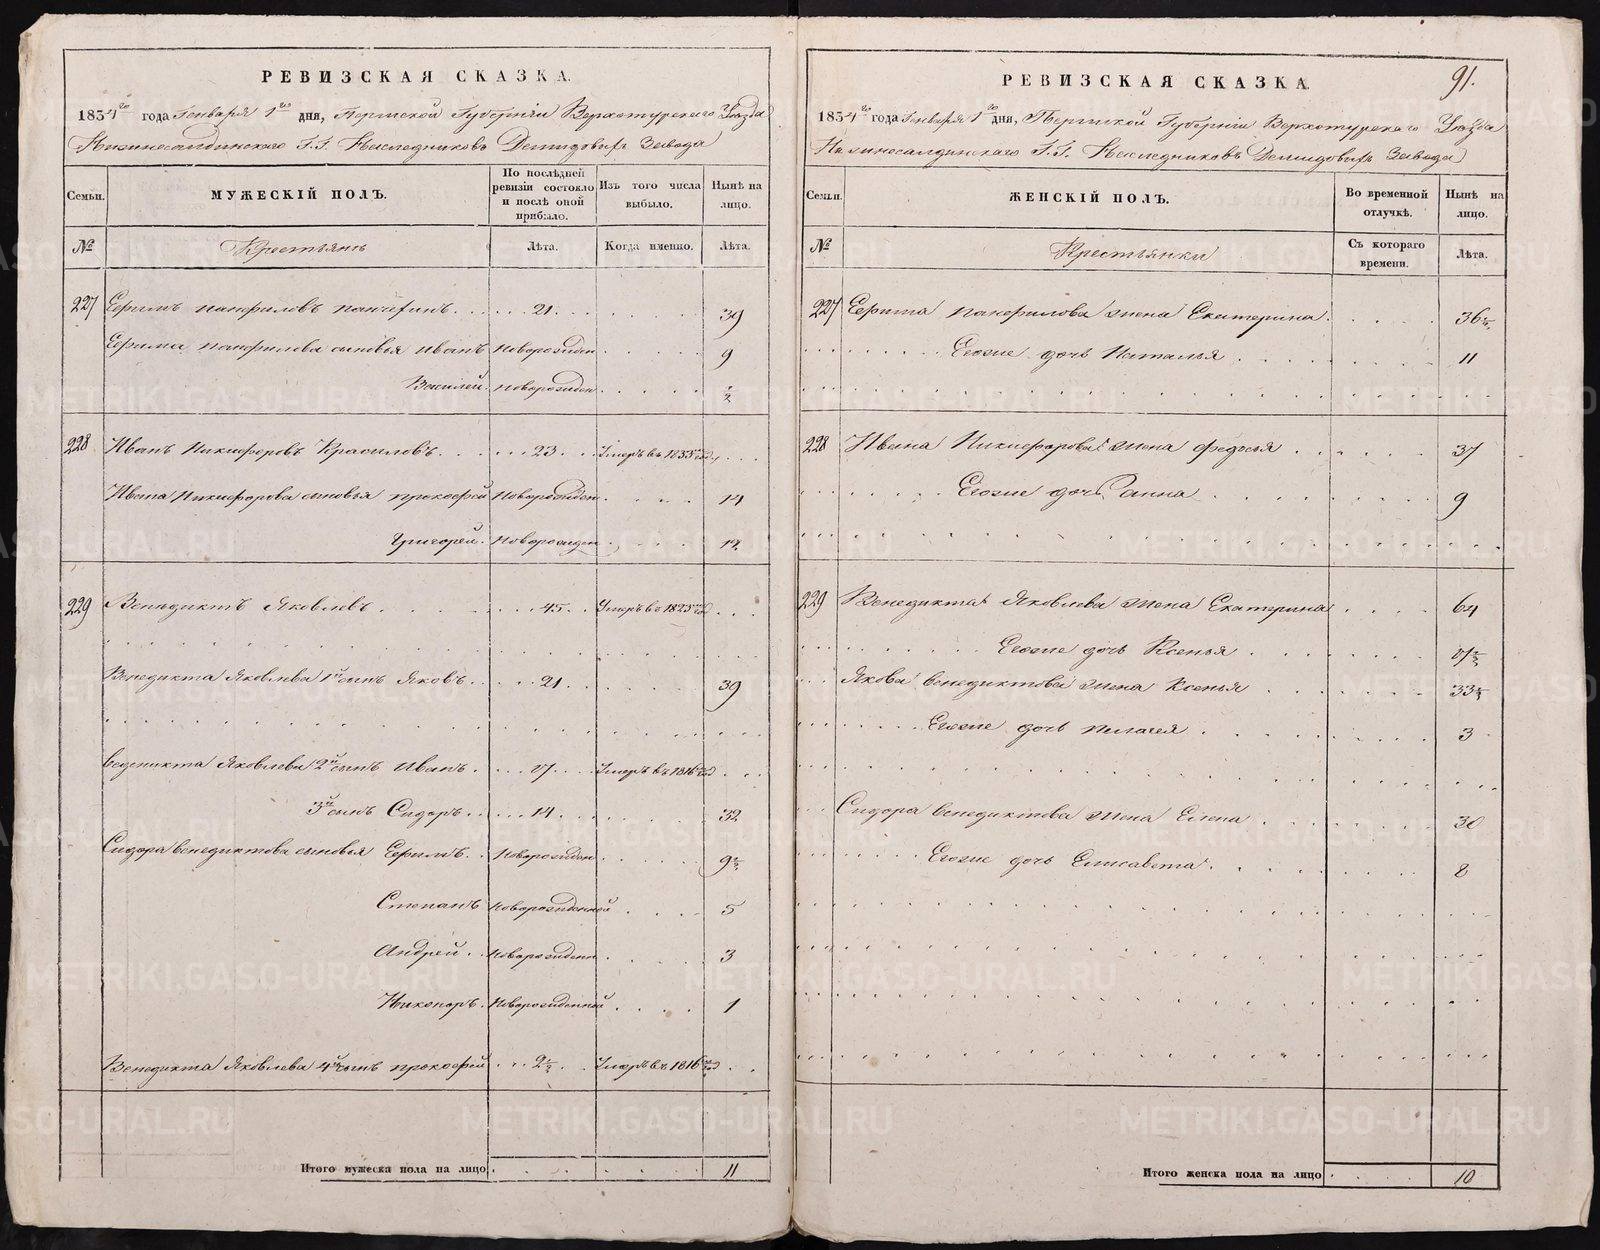 РЕВИЗСКАЯ СКАЗКА.
1834го года Генваря 1го дня, Пермской Губерніи Верхотурскаго Уѣзда
Нижнесалдинскаго Г.Г. Наследниковъ Демидовыхъ Завода
Семьи.
МУЖЕСКІЙ ПОЛЪ.
По послѣдней ревизіи состояло и послѣ оной прибыло.
Изъ того числа выбыло.
Нынѣ на лицо.
№
Крестьянъ
Лѣта.
Когда именно.
Лѣта.
227 Ефимъ Панфиловъ 21. 39
Ефима Панфилова сыновья Иванъ новорожден 9
Василей. новорожден ½
228 Иванъ Никифоровъ Красиловъ. 23. Умеръ въ 1833 год
Ивана Никифорова сыновья Прокофей новорожден 14
Григорей. новорожден 12
229 Венедиктъ Яковлевъ 45. Умеръ въ 1825 год
Венедикта Яковлева 1й сынъ Яковъ. 21. 39
Веденикта Яковлева 2й сынъ Иванъ. 17. Умеръ въ 1816 год
3й сынъ Сидоръ. 14. 32
Сидора Венедиктова сыновья Ефимъ. новорожден 9½
Степанъ новорожденной 5
Андрей. новорожден 3
Никоноръ. новорожденной 1
Венедикта Яковлева 4й сынъ Прокофей 2½ Умеръ въ 1816 год
Итого мужеска пола на лицо 11
91.
РЕВИЗСКАЯ СКАЗКА
1834го года Генваря 1го дня, Пермской Губерніи Верхотурскаго Уѣзда
Нижнесалдинскаго Г.Г. Наследниковъ Демидовыхъ Завода
Семьи.
ЖЕНСКІЙ ПОЛЪ.
Во временной отлучкѣ.
Нынѣ на лицо.
№
Крестьянки
Съ котораго времени.
Лѣта.
227 Ефима Панфилова жена Екатерина. 36½
Егоже дочь Наталья 11
228 Ивана Никифорова жена Федосья 37
Егоже дочь Анна 9
229 Венедикта Яковлева жена Екатерина 64
Егоже дочь Ксенья 17½
Якова Венедиктова жена Ксенья 33½
Егоже дочь Пелагея 3
Сидора Венедиктова жена Елена 30
Егоже дочь Елисавета 8
Итого женска пола на лицо 10
METRIKI.GASO-URAL.RU